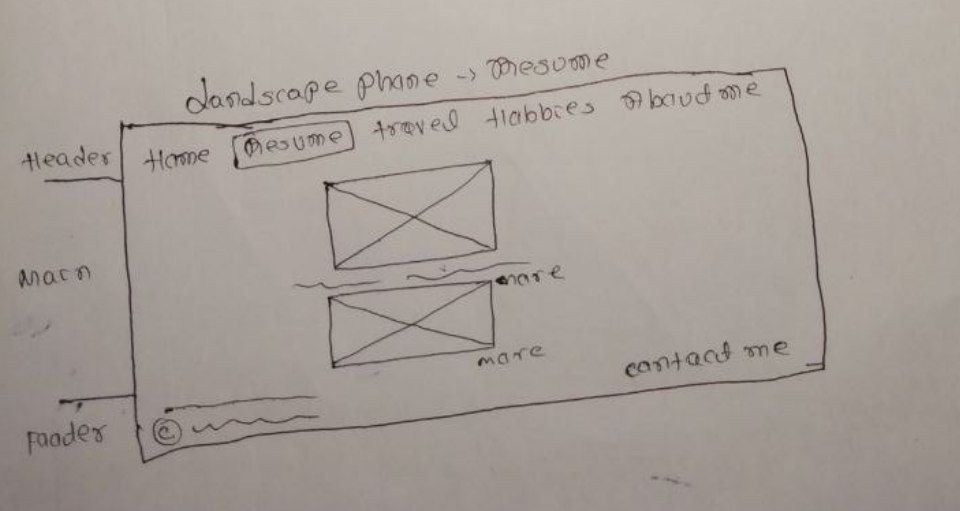 Landscape phone -> Resume
Header
Home Resume travel Hobbies About me
Main
more
more
contact me
Footer
©